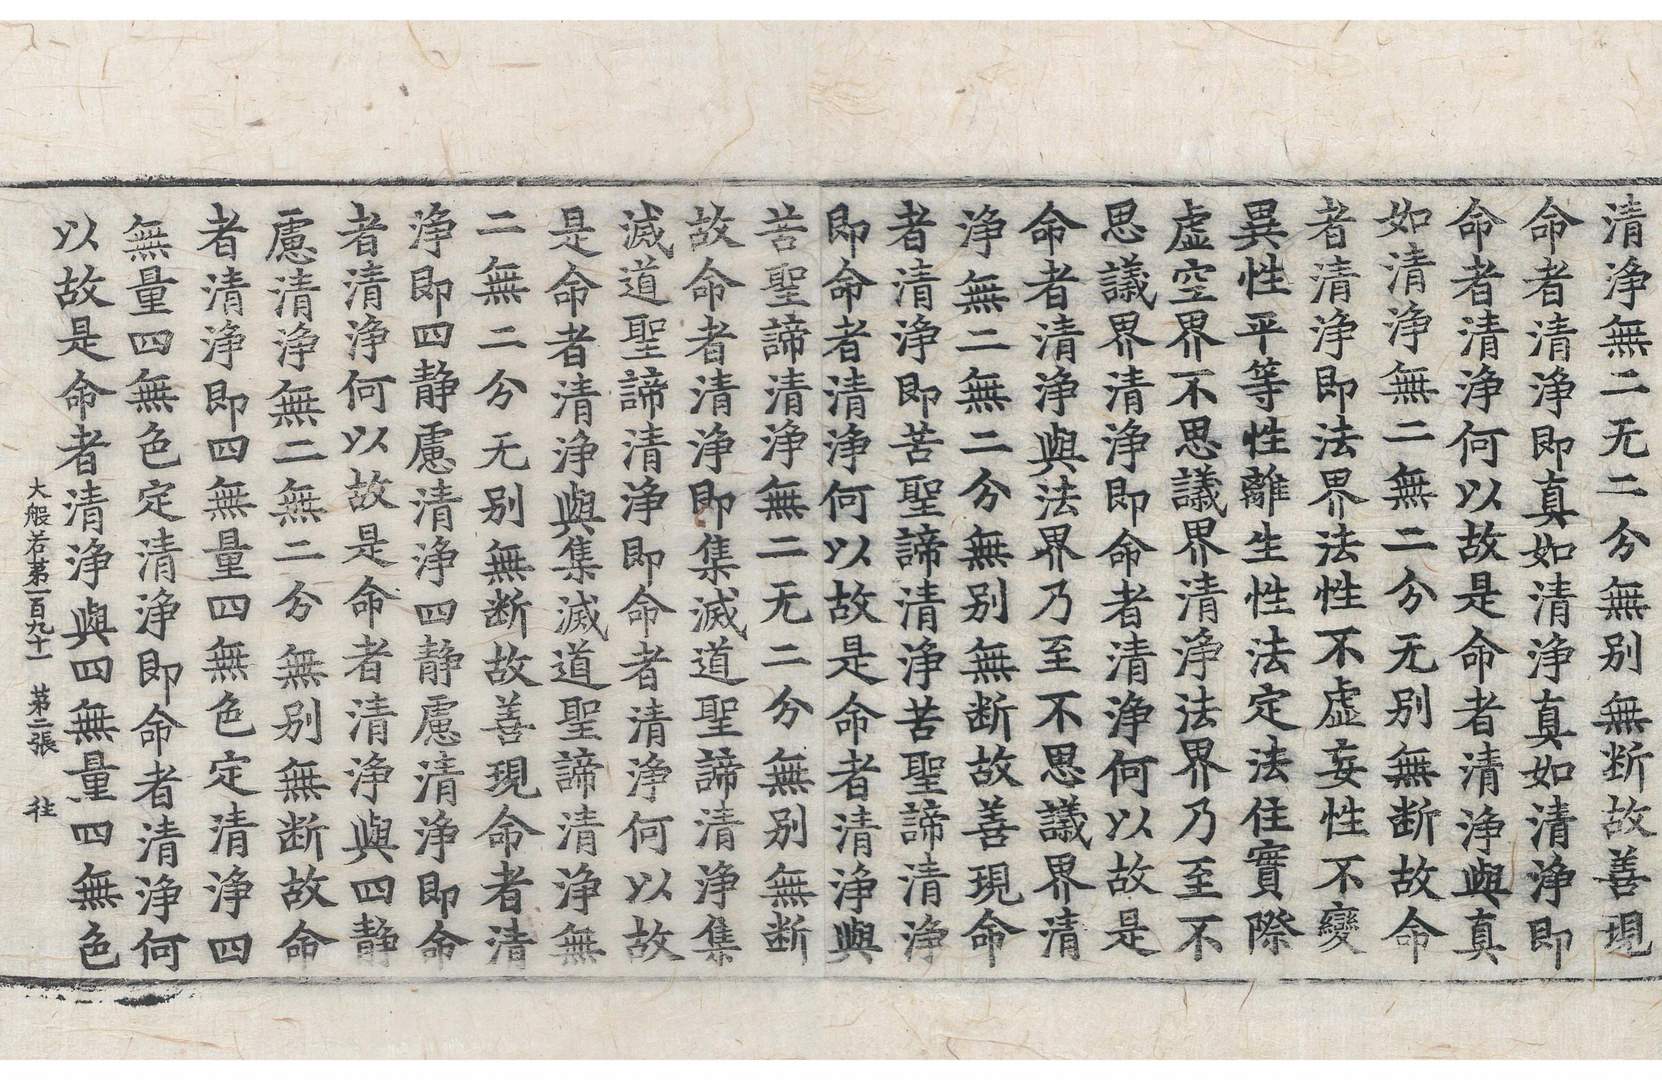 清浄無二无二分無别無断故善現
命者清浄即真如清浄真如清浄即
命者清浄何以故是命者清浄與真
如清浄無二無二分无别無断故命
者清浄即法界法性不虚妄性不變
異性平等性離生性法定法住實際
虚空界不思議界清浄法界乃至不
思議界清浄即命者清浄何以故是
命者清浄與法界乃至不思議界清
浄無二無二分無别無断故善現命
者清浄即苦聖諦清浄苦聖諦清浄
即命者清浄何以故是命者清浄與
苦聖諦清浄無二无二分無别無断
故命者清浄即集滅道聖諦清浄集
滅道聖諦清浄即命者清浄何以故
是命者清浄與集滅道聖諦清浄無
二無二分无别無断故善現命者清
浄即四静慮清浄四静慮清浄即命
者清浄何以故是命者清浄與四静
慮清浄無二無二分無别無断故命
者清浄即四無量四無色定清浄四
無量四無色定清浄即命者清浄何
以故是命者清浄與四無量四無色
大般若第一百九十一 第二張 往